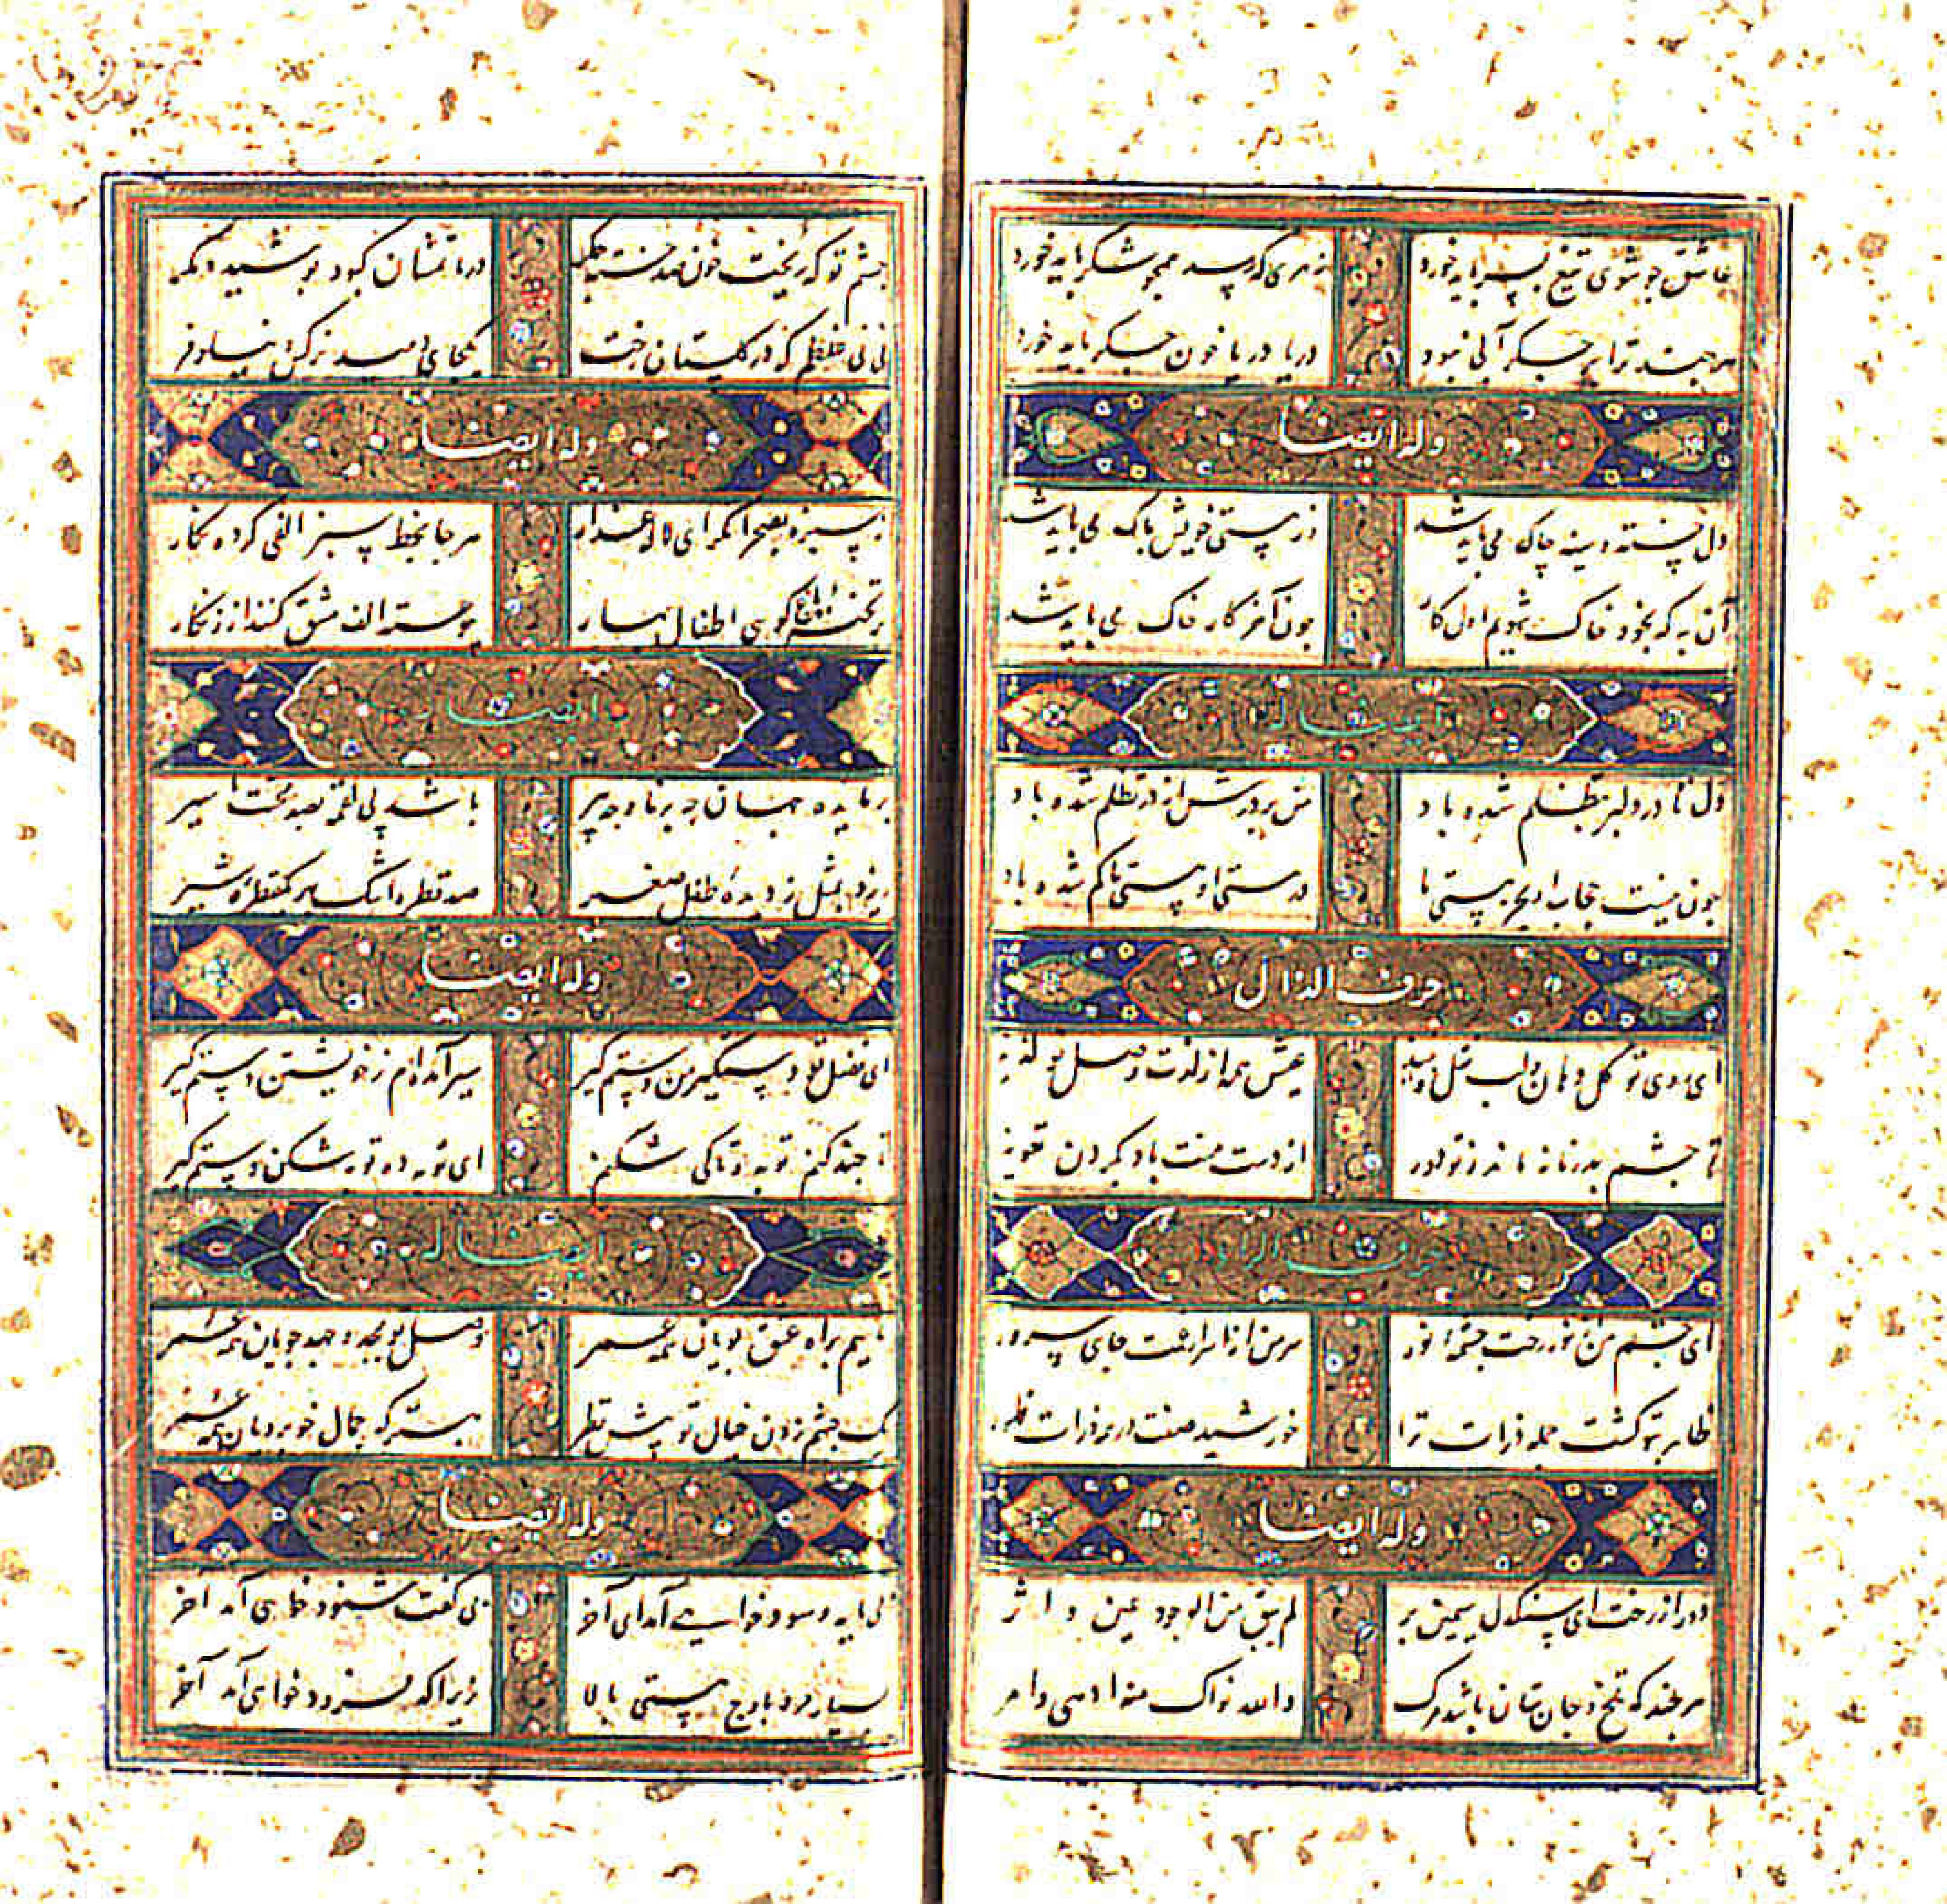 عاشق چو شوی تیغ بسر باید خورد زهری که رسد همچو شکر باید خورد
هر چند ترا بر جگر آبی نبود دریا دریا خون جگر باید خورد
وله ایضا
دل خسته و سینه چاک می باید شد وز هستی خویش پاک می باید شد
آن به که بخود خاک شویم اول کار چون آخر کار خاک می باید شد
ایضا له
دل تا در دلبر بتظلم شده باد من بر درش از در تظلم شده باد
چون نیست حجاب او بجز هستی ما در هستی او هستی ما گم شده باد
حرف الذال
ای روی تو گل دهان و لب نقل و نبیذ عیش همه از لذت وصل تو لذیذ
تا چشم بد زمانه ماند ز تو دور از دست منت باد بگردن تعویذ
حرف الراء
ای چشم من از نور رخت چشمه نور سر من از اسرار غمت جای سرور
ظاهر بتو گشت جمله ذرات ترا خورشید صفت در ذرات ظهور
وله ایضا
دور از رخت ای سنگدل سیمین بر لم یبق من الوجود عین و اثر
هر چند که تلخ و جان ستان باشد مرگ والله نواک منه ادهی و امر
چشم تو که ریخت خون صد خسته جگر در ماتمشان کبود پوشیده مگر
نی نی غلطم که در گلستان رخت یکجای دمیده نرگس و نیلوفر
وله ایضا
ز سبزه بصحرا نگر ای لاله عذار هر جا بخط سبز الفی کرده نگار
بر تخته باغ گویی اطفال بهار پیوسته الف مشق کنند از زنگار
ایضا له
بر مایده جهان چه برنا و چه پیر باشد پی لقمه بصد محنت اسیر
ریزد بمثل ز دیده طفل صغیر صد قطره اشک بهر یکقطره شیر
وله ایضا
ای فضل تو دستگیر من دستم گیر سیر آمده ام ز خویشتن دستم گیر
تا چند کنم توبه و تا کی شکنم ای توبه ده توبه شکن دستم گیر
ایضا له
ماییم براه عشق پویان همه عمر وصل تو بجد و جهد جویان همه عمر
یک چشم زدن خیال تو پیش نظر بهتر که جمال خوبرویان همه عمر
وله ایضا
بی مایه و سود خواهی آمد آخر بی گفت شنود خواهی آمد آخر
بسیار مرو باوج هستی بالا زیرا که فرود خواهی آمد آخر